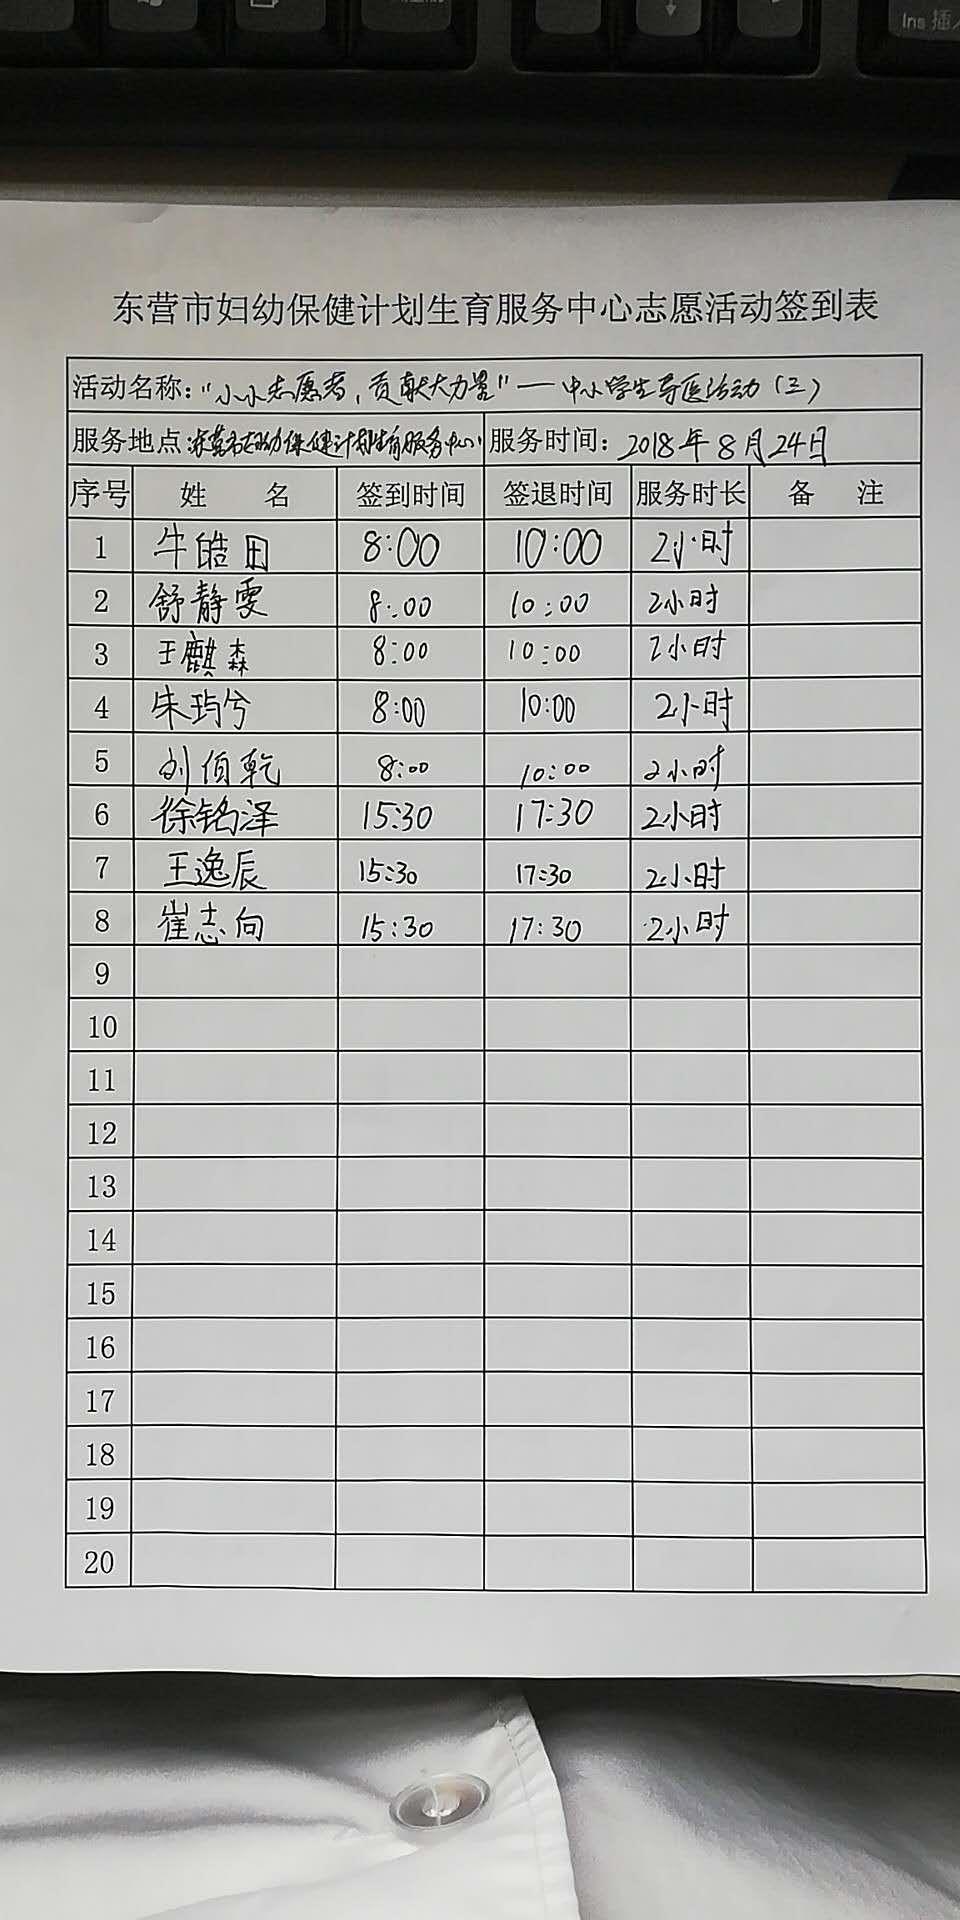 Ins 插
东营市妇幼保健计划生育服务中心志愿活动签到表
活动名称："小小志愿者，贡献大力量"—中小学生导医活动（三）
服务地点：东营市妇幼保健计划生育服务中心 服务时间：2018年8月24日
序号 姓 名 签到时间 签退时间 服务时长 备 注
1 牛皓田 8:00 10:00 2小时
2 舒静雯 8:00 10:00 2小时
3 王麒森 8:00 10:00 2小时
4 朱玙兮 8:00 10:00 2小时
5 刘佰乾 8:00 10:00 2小时
6 徐铭泽 15:30 17:30 2小时
7 王逸辰 15:30 17:30 2小时
8 崔志向 15:30 17:30 2小时
9
10
11
12
13
14
15
16
17
18
19
20